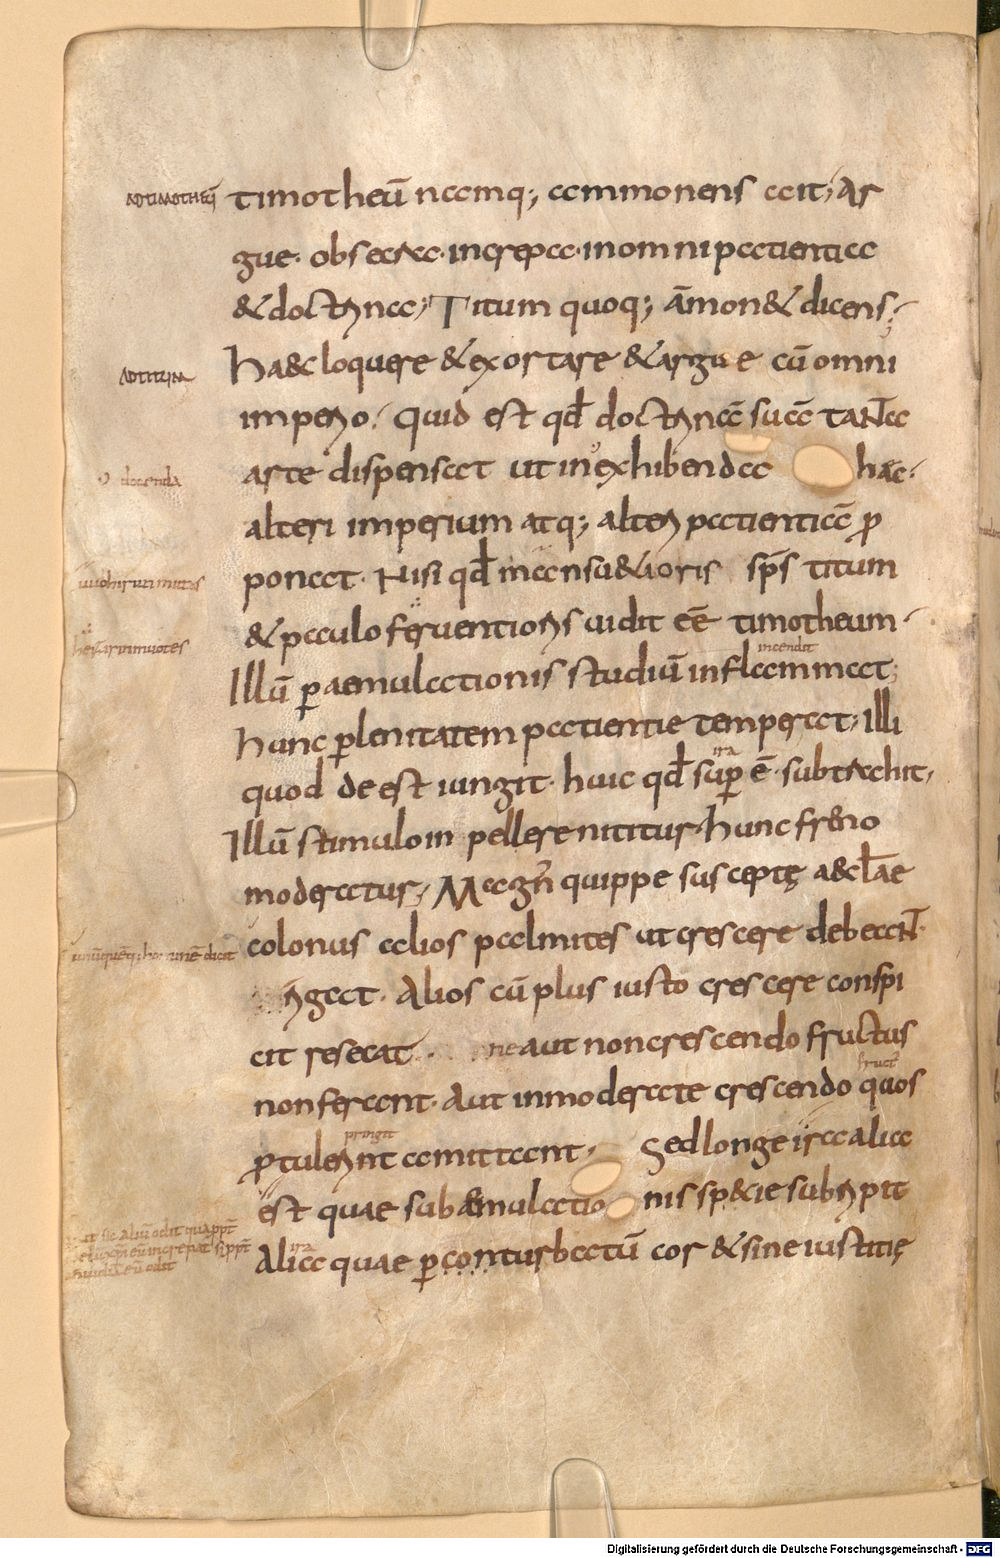 ADTIMOTHEŪ
timotheū namq; ammonens ait; Ar
gue· obsecra· increpa· inomni patientia
& doctrina; Titum quoq; āmon& dicens;
ADTITUM
Ha&c loquere & exortare & argue cū omni
imperio; quid est qđ doctrinā suā tanta
docenda
arte dispensat ut in exhibenda hac·
alteri imperium atq; alteri patientiā ꝓ
ponat· Nisi qđ mansu&ioris sp̄s titum
& paulo ferventioris uidit eē timotheum·
incendit
Illū ꝑ aemulationis studiū inflammat;
hunc ꝑ lenitatem patientie temperat; illi
ira
quod de est iungit· huic qđ suꝑ ē· subtrahit,
Illū stimulo in pellere nititur· hunc freno
moderatur; Magn̄ quippe susceptę a&cl̄ae
colonus alios palmites ut crescere debeant·
rigat· Alios cū plus iusto crescere conspi
cit resecat· ne aut non crescendo fructus
fruct
non ferant· Aut inmoderate crescendo quos
ꝓtulerint amittant· Sed longe ira alia
est quae sub aemulatio nis sp&cie subripit
ira
Alia quae ꝑconturbatū cor & sine iustitię
Digitalisierung gefördert durch die Deutsche Forschungsgemeinschaft - DFG